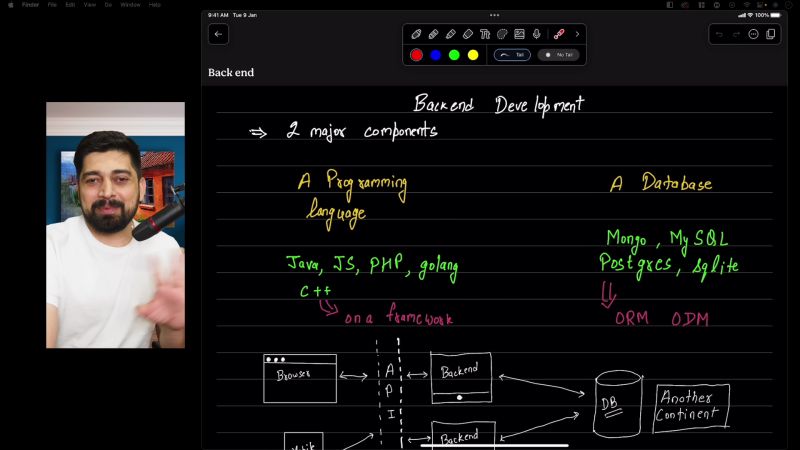 Finder File Edit View Go Window Help
9:41 AM Tue 9 Jan
100%
Tail
No Tail
Back end
Backend Development
⇒ 2 major components
A Programming
language
A Database
Java, JS, PHP, golang
C++
on a framework
Mongo, MySQL
Postgres, sqlite
ORM ODM
Browser
A
P
I
Backend
DB
Another
Continent
Backend